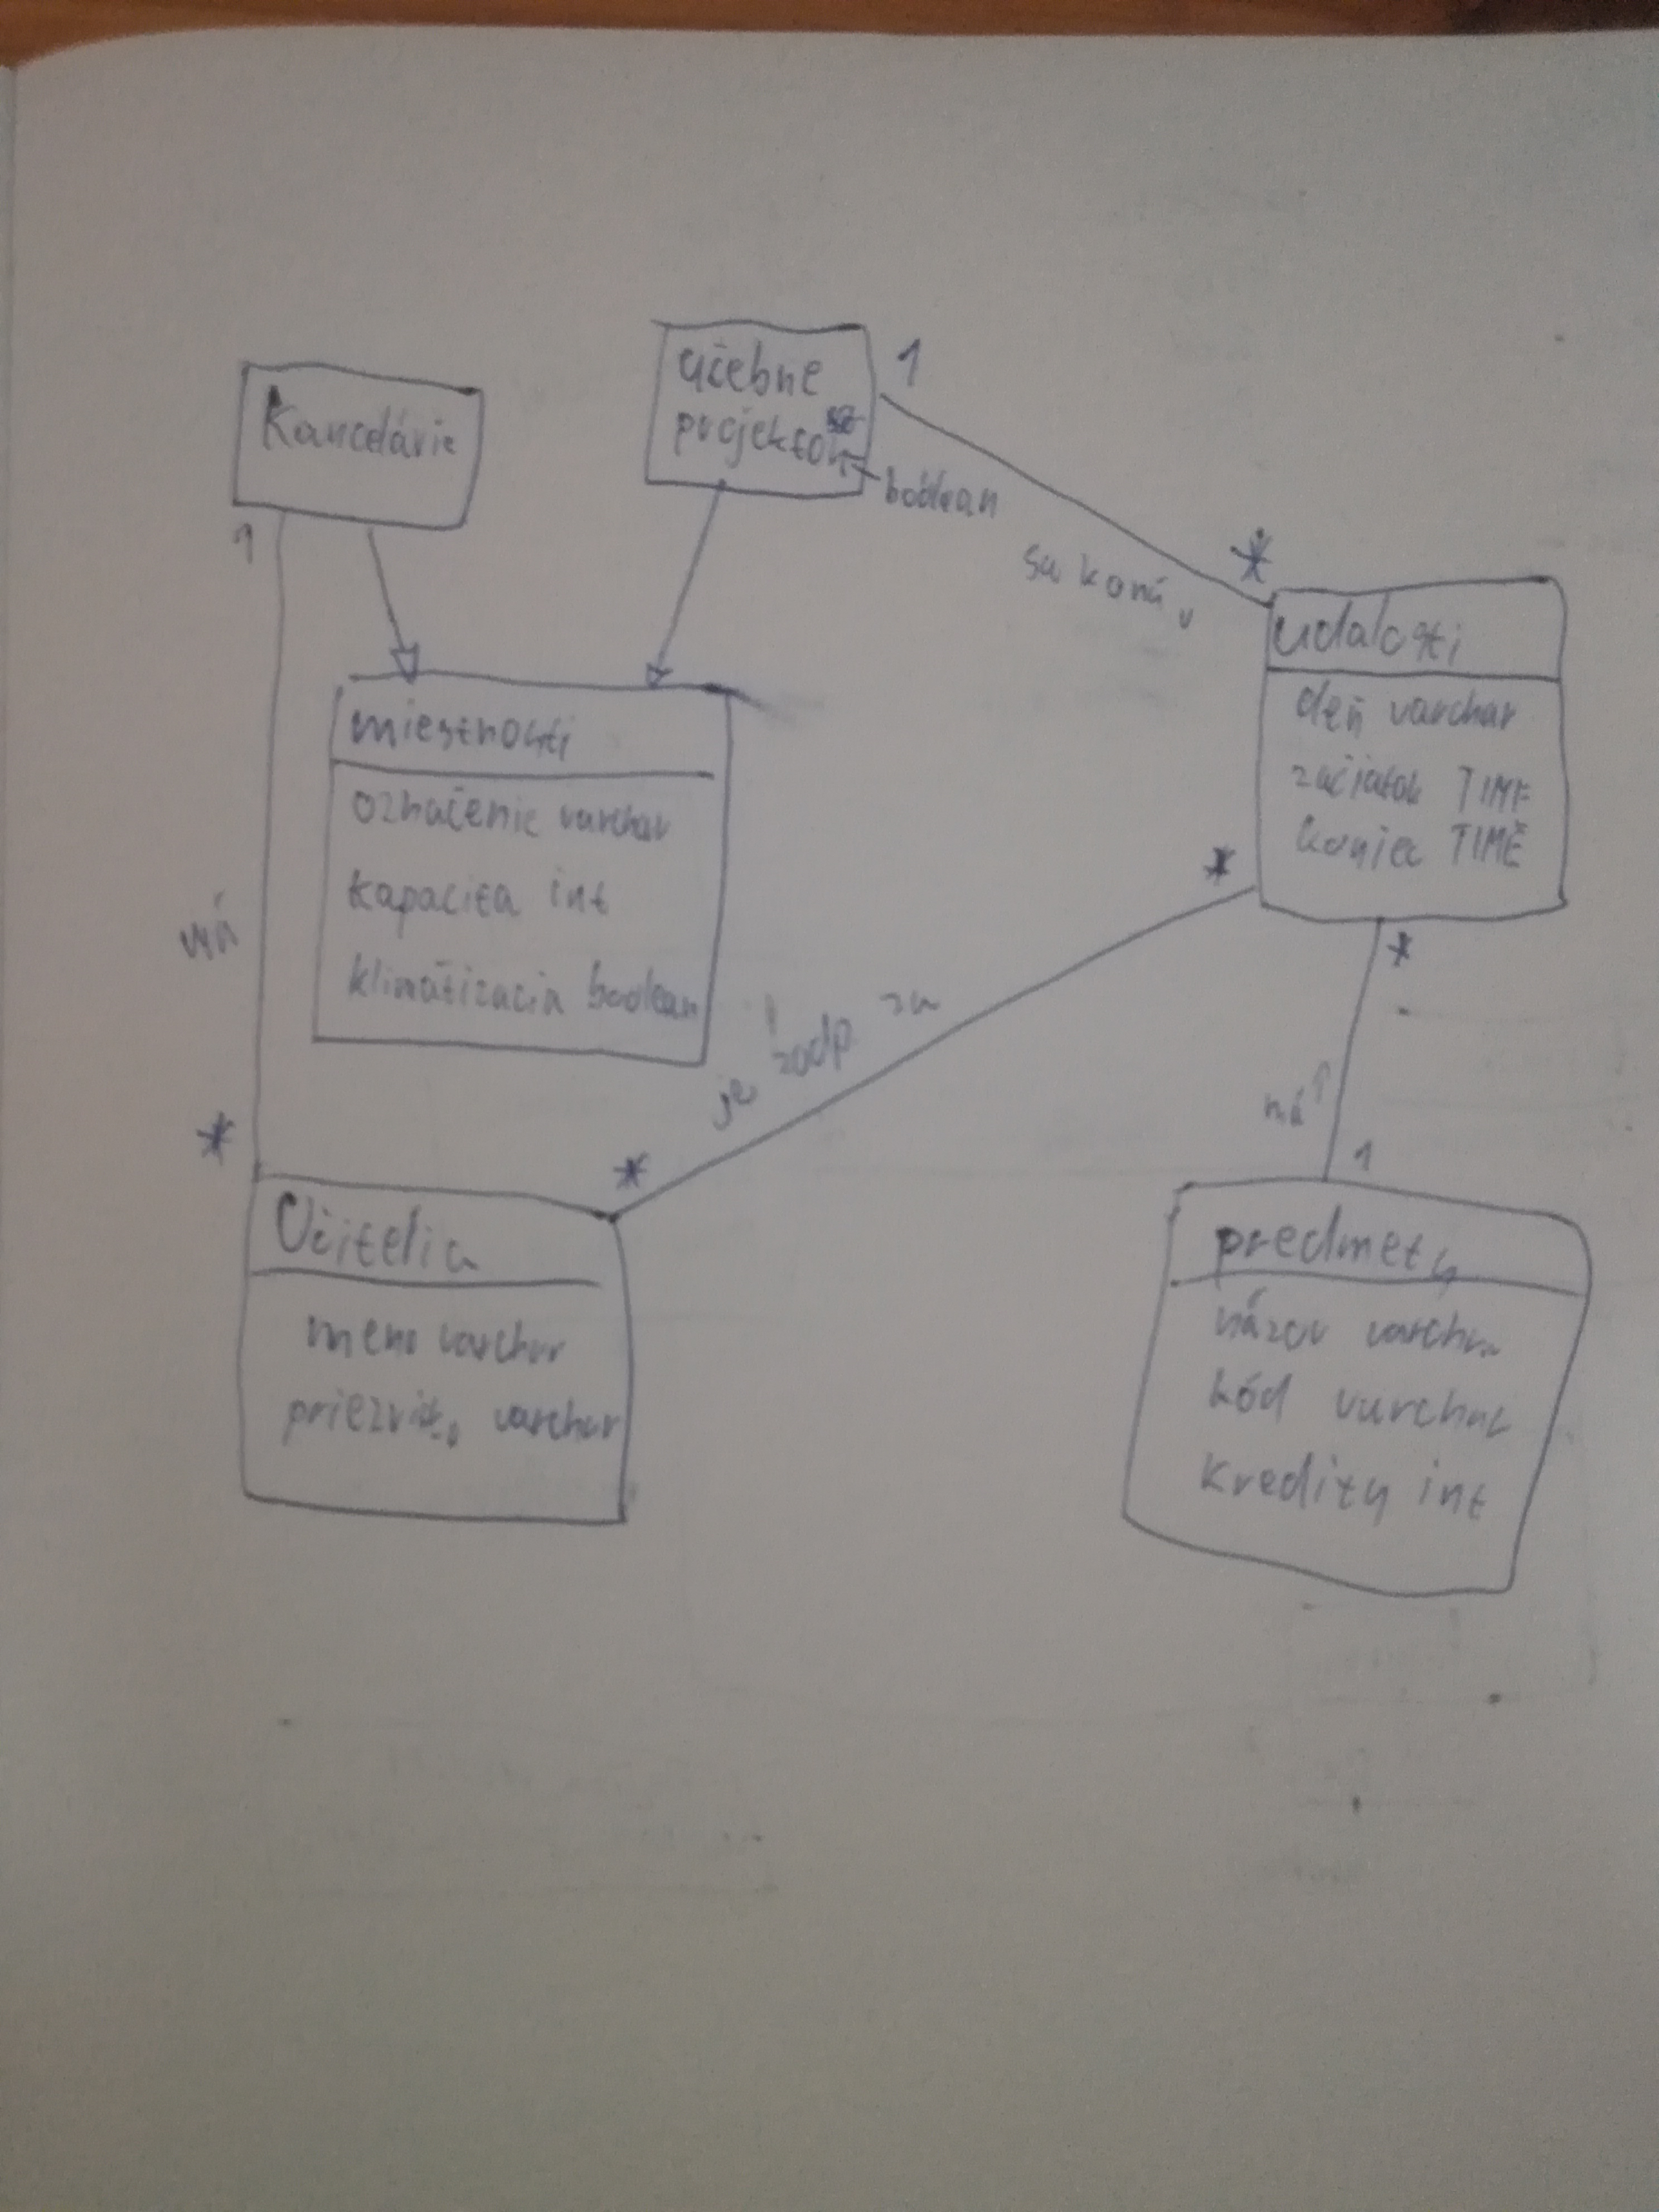 Kancelárie
1
učebne
projektor
boolean
1
*
sa koná v
udalosti
deň varchar
začiatok TIME
koniec TIME
*
*
miestnosti
označenie varchar
kapacita int
klimatizacia boolean
má
*
je zodp za
*
má
1
Učitelia
meno varchar
priezvisko varchar
predmety
názov varchar
kód varchar
kredity int